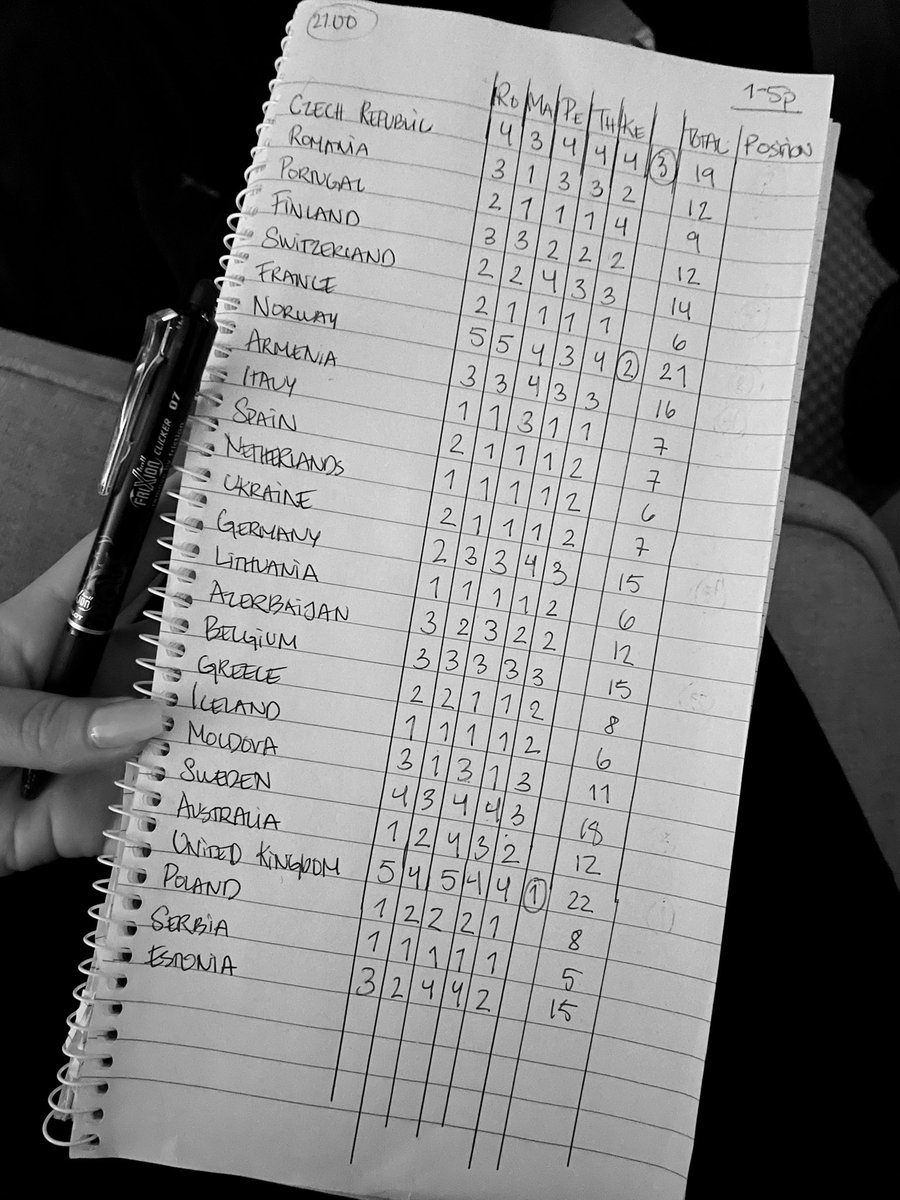 21:00
1-5p
RO MA PE TH KE TOTAL POSITION
CZECH REPUBLIC 4 3 4 4 4 3 19
ROMANIA 3 1 3 3 2 12
PORTUGAL 2 1 1 1 4 9
FINLAND 3 3 2 2 2 12
SWITZERLAND 2 2 4 3 3 14
FRANCE 2 1 1 1 1 6
NORWAY 5 5 4 3 4 2 21
ARMENIA 3 3 4 3 3 16
ITALY 1 1 3 1 1 7
SPAIN 2 1 1 1 2 7
NETHERLANDS 1 1 1 1 2 6
UKRAINE 2 1 1 1 2 7
GERMANY 2 3 3 4 3 15
LITHUANIA 1 1 1 1 2 6
AZERBAIJAN 3 2 3 2 2 12
BELGIUM 3 3 3 3 3 15
GREECE 2 2 1 1 2 8
ICELAND 1 1 1 1 2 6
MOLDOVA 3 1 3 1 3 11
SWEDEN 4 3 4 4 3 18
AUSTRALIA 1 2 4 3 2 12
UNITED KINGDOM 5 4 5 4 4 1 22
POLAND 1 2 2 2 1 8
SERBIA 1 1 1 1 1 5
ESTONIA 3 2 4 4 2 15
FRIXION CLICKER 07